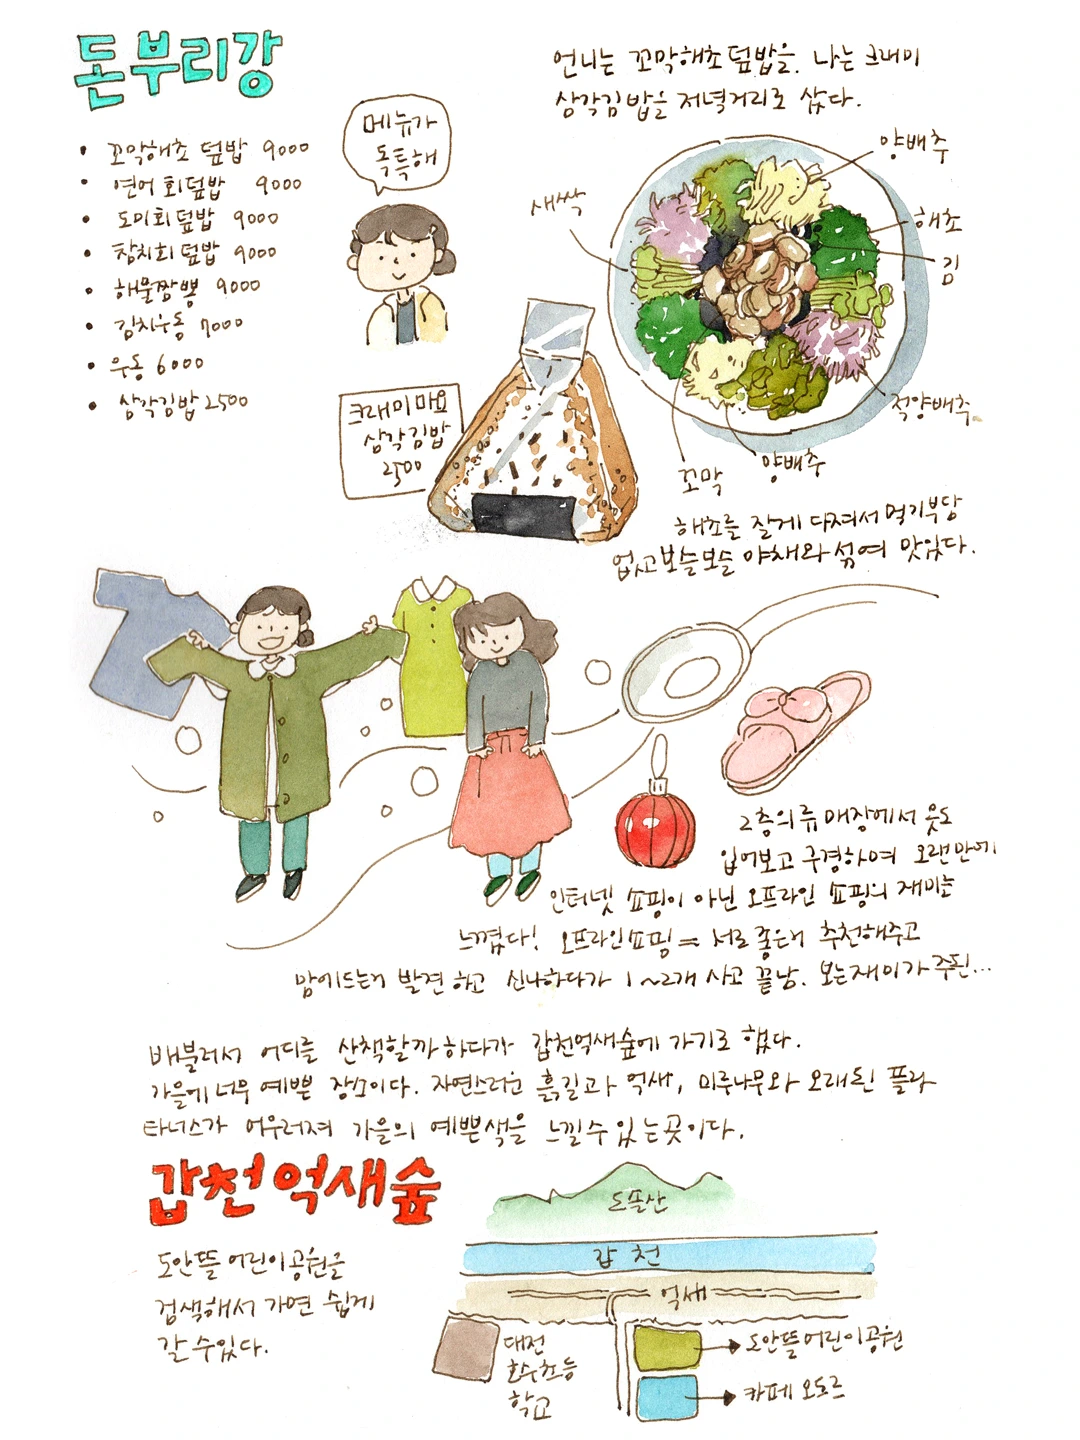 돈부리강
• 꼬막해초 덮밥 9000
• 연어 회덮밥 9000
• 도미회덮밥 9000
• 참치회덮밥 9000
• 해물짬뽕 9000
• 김치우동 7000
• 우동 6000
• 삼각김밥 2500
메뉴가
독특해
언니는 꼬막해초덮밥을. 나는 크래미
삼각김밥을 저녁거리로 샀다.
양배추
새싹
해초
김
적양배추
꼬막
양배추
크래미마요
삼각김밥
2500
해초를 잘게 다져서 먹기부담
없고 보슬보슬 야채와 섞여 맛있다.
2층의류매장에서 옷도
입어보고 구경하며 오랜만에
인터넷 쇼핑이 아닌 오프라인 쇼핑의 재미를
느꼈다! 오프라인쇼핑 = 서로 좋은거 추천해주고
맘에드는거 발견하고 신나하다가 1~2개 사고 끝남. 보는재미가 주된...
배불러서 어디를 산책할까하다가 갑천억새숲에 가기로 했다.
가을에 너무 예쁜 장소이다. 자연스러운 흙길과 억새, 미루나무와 오래된 플라
타너스가 어우러져 가을의 예쁜색을 느낄수 있는곳이다.
갑천억새숲
도안뜰어린이공원을
검색해서 가면 쉽게
갈 수있다.
도솔산
갑천
억새
대전
호수초등
학교
도안뜰어린이공원
카페 오도르